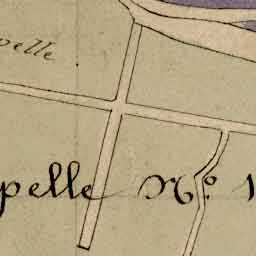 pelle
pelle N.o 1